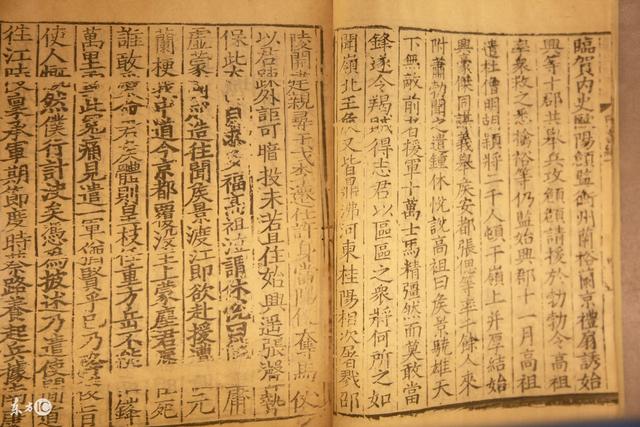 臨賀內史歐陽頠監衡州蘭裕蘭京禮扇誘始
興等十郡共舉兵攻頠頠請援於勃勃令高祖
率衆救之悉擒裕等仍監始興郡十一月高祖
遣杜僧明胡穎將二千人頓于嶺上并厚結始
興豪傑同謀義舉侯安都張偲等率千餘人來
附蕭勃聞之遣鍾休悅說高祖曰侯景驍雄天
下無敵前者援軍十萬士馬精彊然而莫敢當
鋒遂令羯賊得志君以區區之衆將何所之如
聞嶺北王侯又皆鼎沸河東桂陽相次屠戮邵
陵開建親尋干戈李遷仕許身當陽便奪馬仗
以君疎外詎可暗投未若且住始興遥張聲勢
保此太山自求多福高祖泣謂休悅曰庸
虛蒙國成造往聞侯景渡江即欲赴援遭元
蘭梗我中道今京都覆沒主上蒙塵君臣死
誰敢愛命君侯體則皇枝任重方岳不能鋒
萬里雪此冤痛見遣一軍猶賢乎已乃旨
使人慨然僕行計决矣憑爲披述乃遣使間道
往江陵稟承軍期節度時蔡路養起兵據南